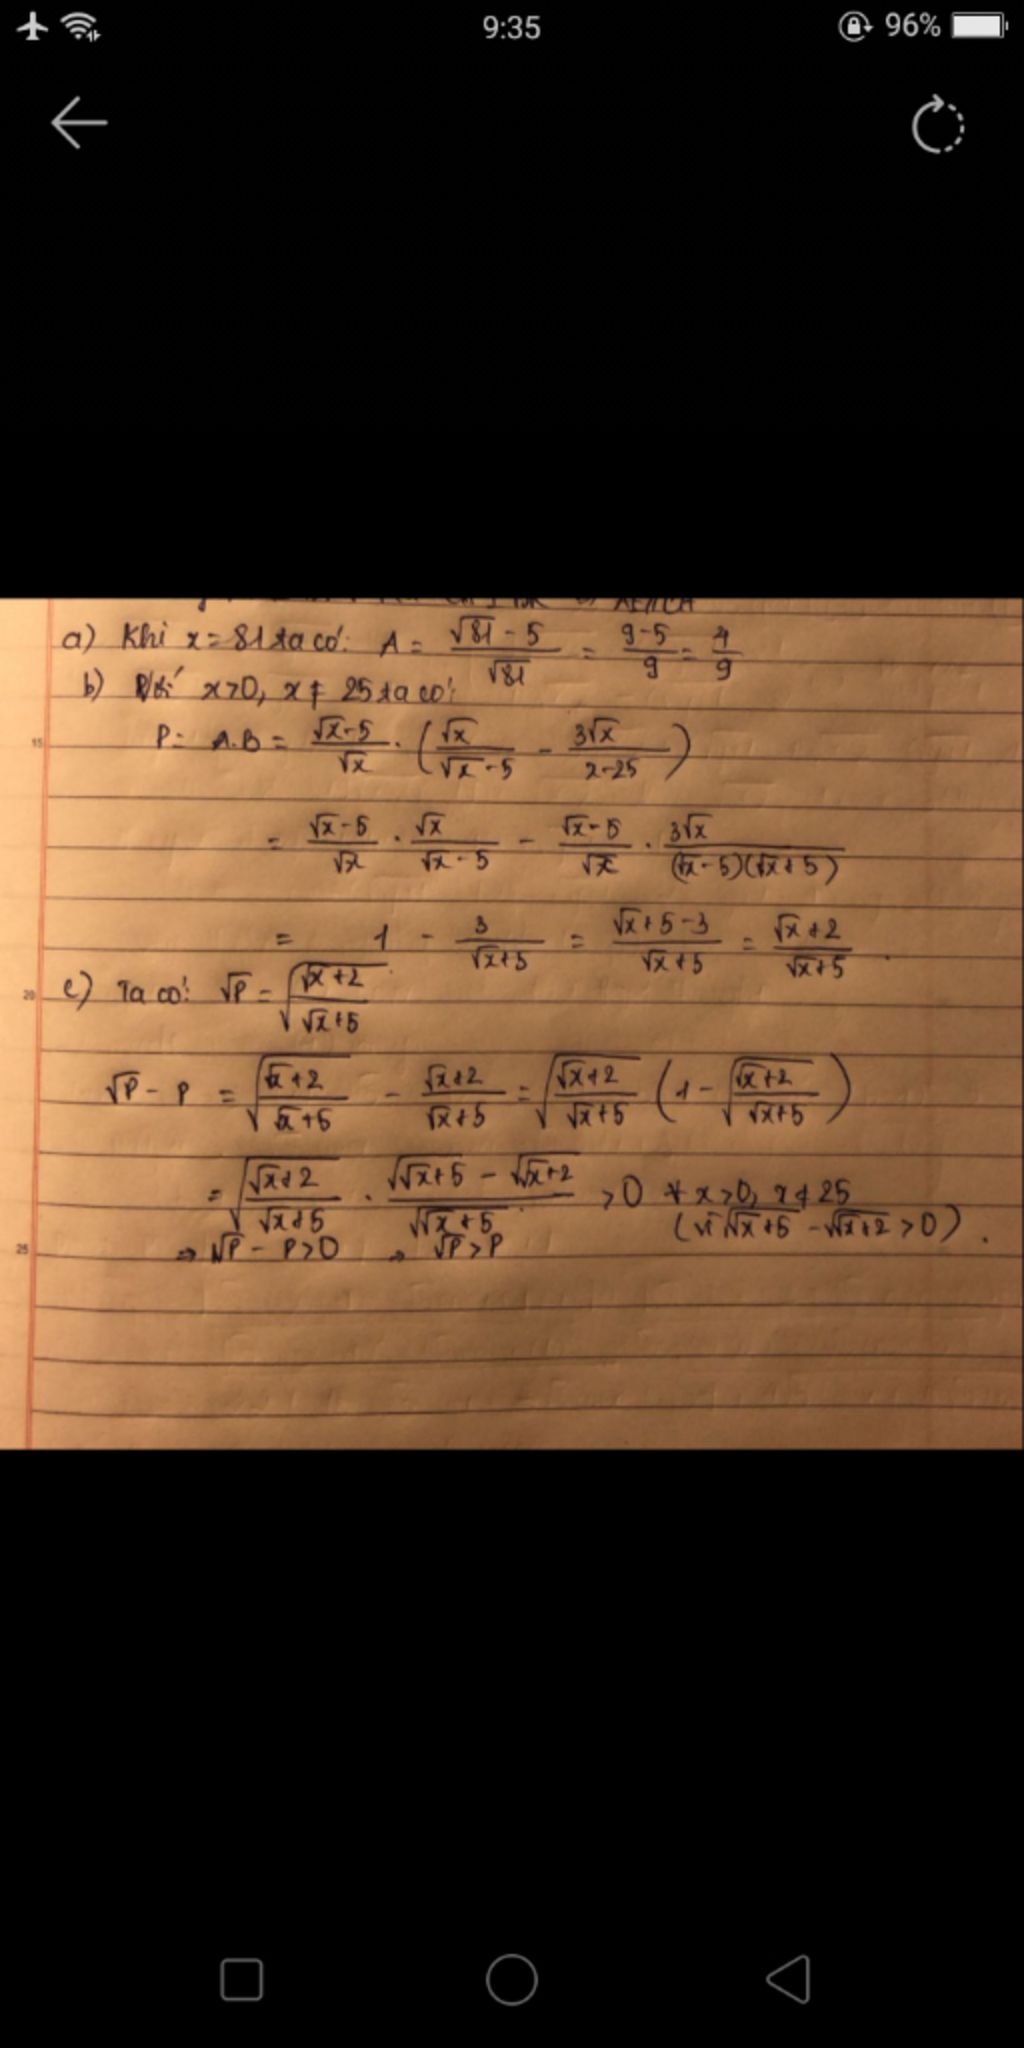 9:35 96%
a) Khi x = 81 ta có: A = \frac{\sqrt{81} - 5}{\sqrt{81}} = \frac{9-5}{9} = \frac{4}{9}
b) Với x>0, x ≠ 25 ta có:
15 P = A.B = \frac{\sqrt{x}-5}{\sqrt{x}} . \left( \frac{\sqrt{x}}{\sqrt{x}-5} - \frac{3\sqrt{x}}{x-25} \right)
= \frac{\sqrt{x}-5}{\sqrt{x}} . \frac{\sqrt{x}}{\sqrt{x}-5} - \frac{\sqrt{x}-5}{\sqrt{x}} . \frac{3\sqrt{x}}{(\sqrt{x}-5)(\sqrt{x}+5)}
= 1 - \frac{3}{\sqrt{x}+5} = \frac{\sqrt{x}+5-3}{\sqrt{x}+5} = \frac{\sqrt{x}+2}{\sqrt{x}+5}.
20 c) Ta có: \sqrt{P} = \sqrt{\frac{\sqrt{x}+2}{\sqrt{x}+5}}
\sqrt{P} - P = \sqrt{\frac{\sqrt{x}+2}{\sqrt{x}+5}} - \frac{\sqrt{x}+2}{\sqrt{x}+5} = \sqrt{\frac{\sqrt{x}+2}{\sqrt{x}+5}} \left( 1 - \sqrt{\frac{\sqrt{x}+2}{\sqrt{x}+5}} \right)
= \sqrt{\frac{\sqrt{x}+2}{\sqrt{x}+5}} . \frac{\sqrt{\sqrt{x}+5} - \sqrt{\sqrt{x}+2}}{\sqrt{\sqrt{x}+5}} > 0 ∀ x>0, x ≠ 25
(vì \sqrt{\sqrt{x}+5} - \sqrt{\sqrt{x}+2} > 0).
25 ⇒ \sqrt{P} - P > 0 ⇒ \sqrt{P} > P